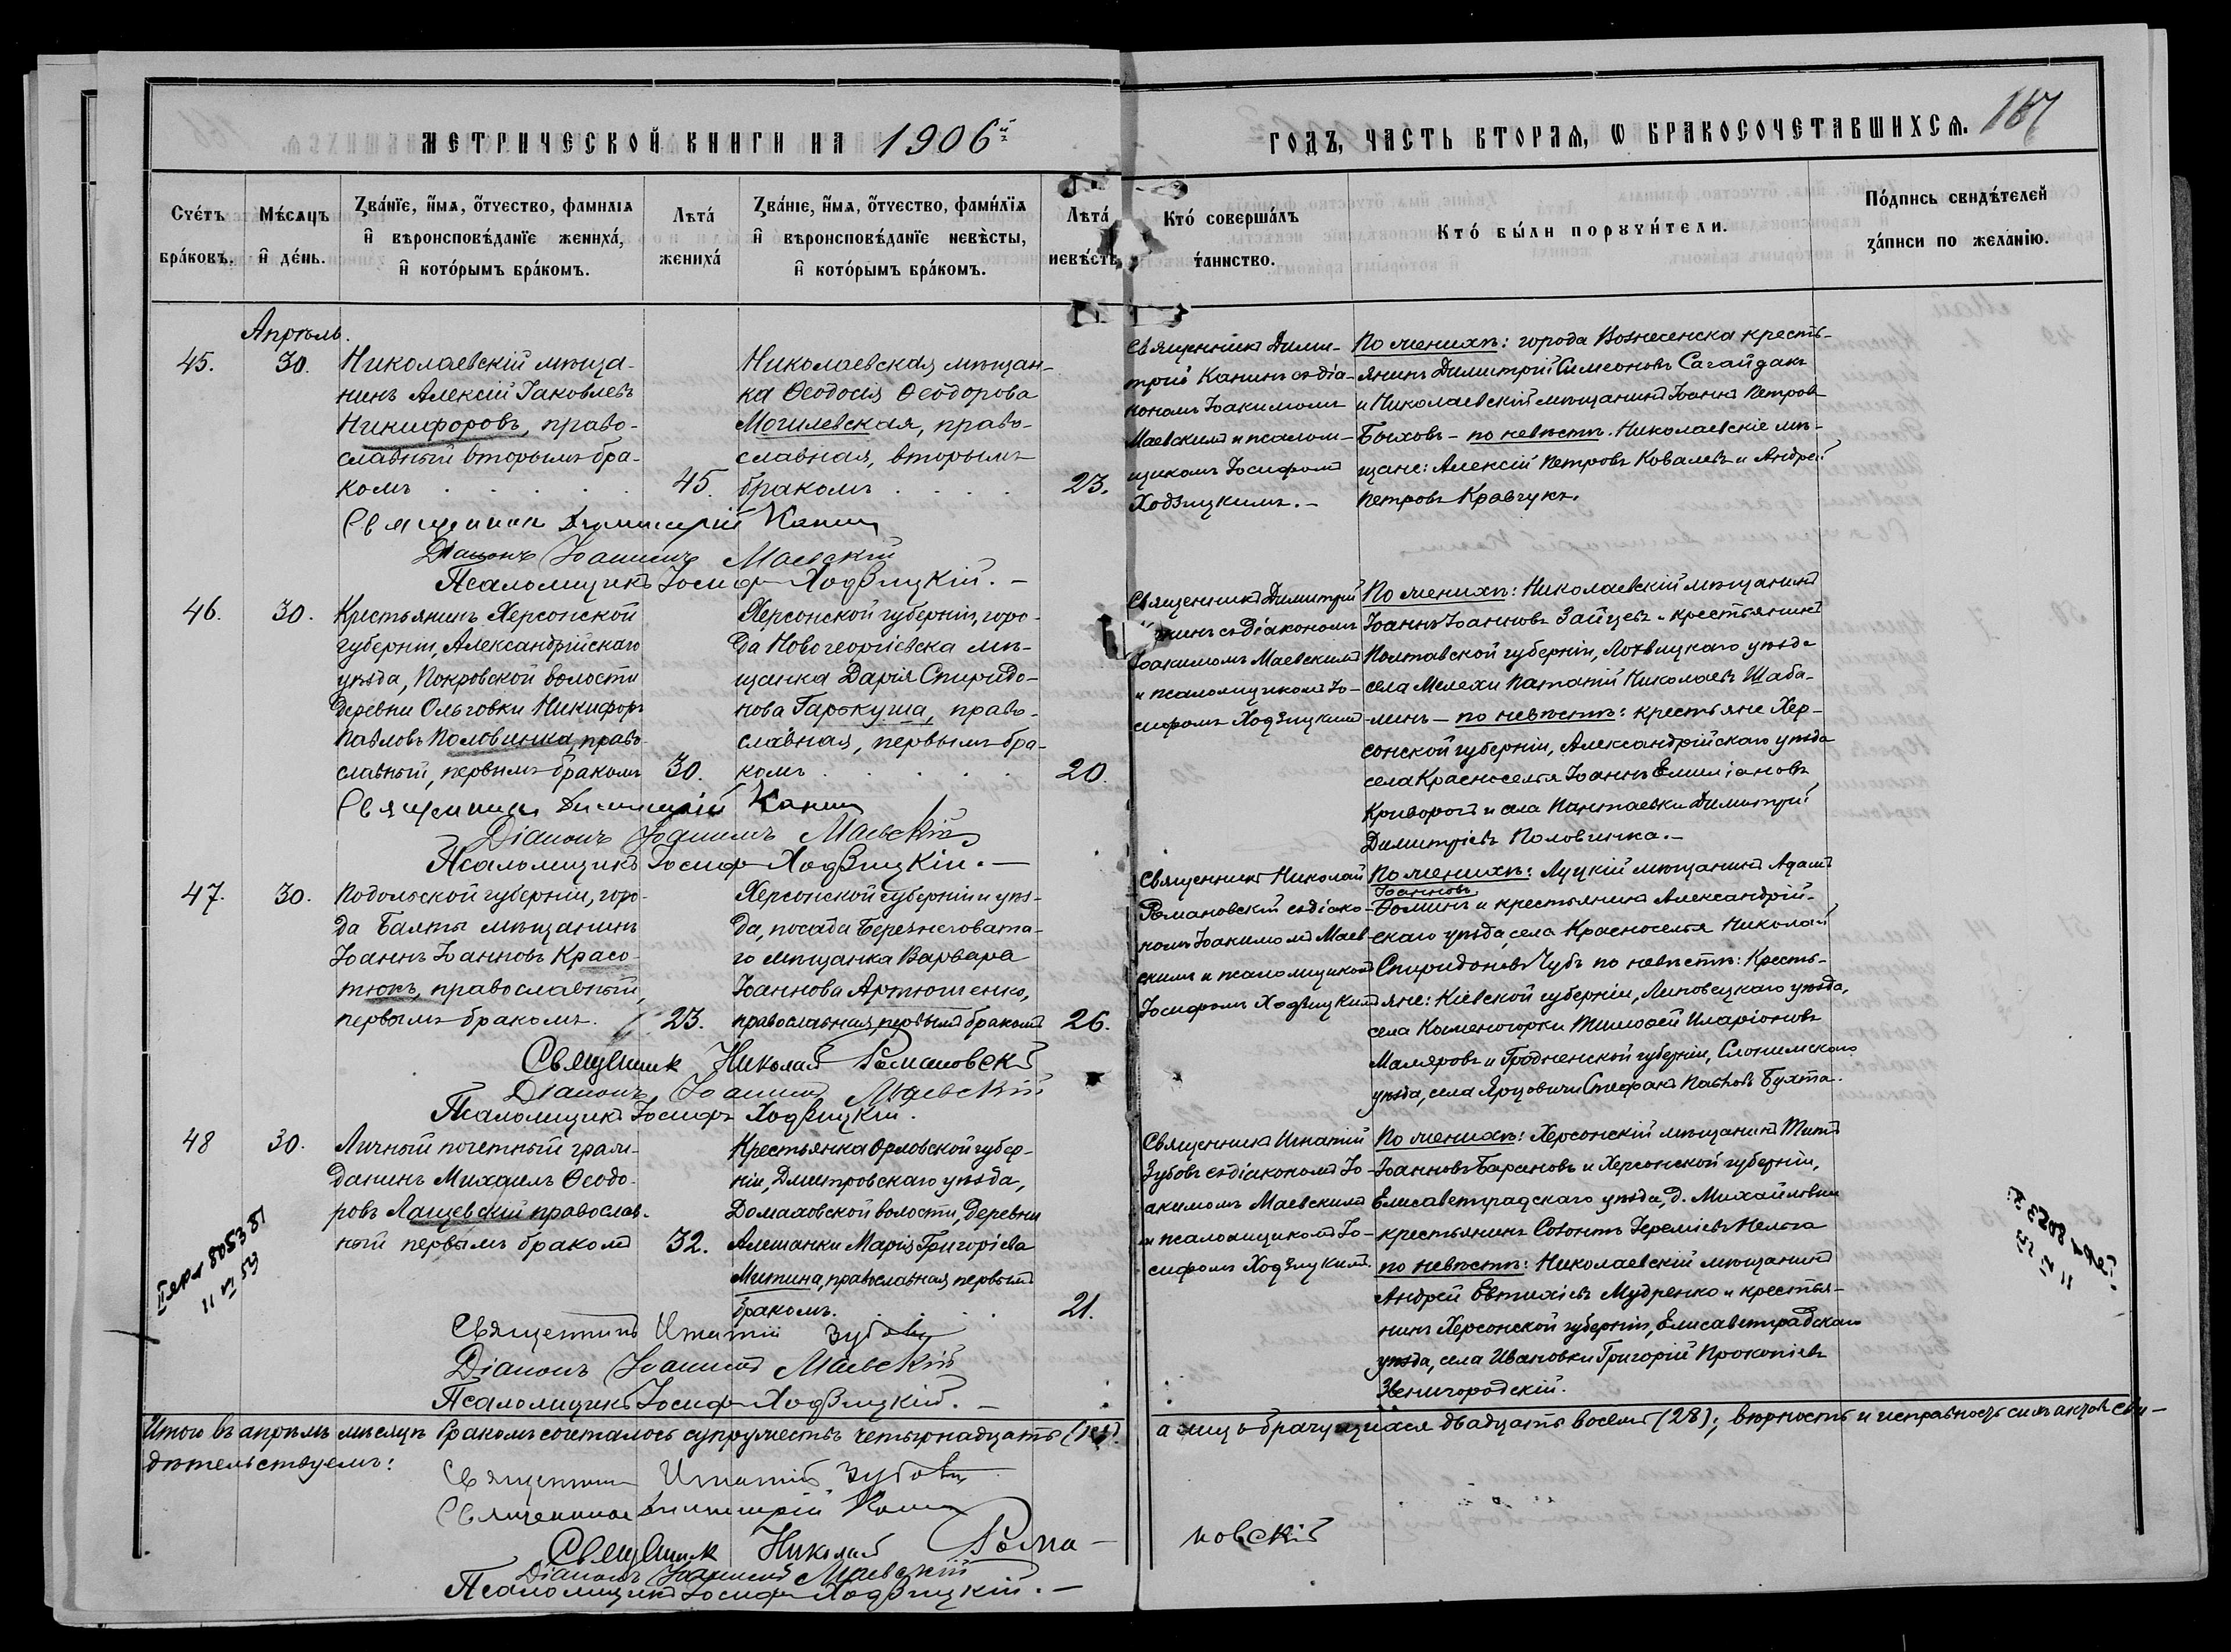 МЕТРИЧЕСКОЙ КНИГИ НА 1906й
ГОДЪ, ЧАСТЬ ВТОРАЯ, Ѡ БРАКОСОЧЕТАВШИХСЯ. 167
Сче́тъ бра́ковъ.
Мѣ́сяцъ и҆ де́нь.
Зва́нїе, и҆́мя, ѻ҆́тчество, фамилія
и҆ вѣроисповѣ́данїе жениха́,
и҆ кото́рымъ бра́комъ.
Лѣта́ жениха́
Зва́ніе, и҆́мя, ѻ҆́тчество, фами́лїя
и҆ вѣроисповѣ́данїе невѣ́сты,
и҆ кото́рымъ бра́комъ.
Лѣта́ невѣ́сты
Кто́ соверша́лъ та́инство.
Кто́ бы́ли поручи́тели.
По́дпись свидѣ́телей за́писи по жела́нію.
Апрѣль.
45. 30.
Николаевскій мѣща-
нинъ Алексій Іаковлевъ
Никифоровъ, право-
славный вторымъ бра-
комъ . . . . . 45.
Николаевская мѣщан-
ка Ѳеодосія Ѳеодорова
Могилевская, право-
славная, вторымъ
бракомъ . . . . 23.
Священникъ Дими-
трій Канинъ съ діа-
кономъ Іоакимомъ
Маевскимъ и псалом-
щикомъ Іосифомъ
Ходзицкимъ. –
По женихѣ: города Вознесенска кресть-
янинъ Димитрій Симеоновъ Сагайдакъ
и Николаевскій мѣщанинъ Іоаннъ Петровъ
Быховъ – по невѣстѣ. Николаевскіе мѣ-
щане: Алексій Петровъ Ковалевъ и Андрей
Петровъ Кравчукъ.
Священникъ Димитрій Канинъ
Діаконъ Іоакимъ Маевскій
Псаломщикъ Іосифъ Ходзицкій. –
46. 30.
Крестьянинъ Херсонской
губерніи, Александрійскаго
уѣзда, Покровской волости
деревни Ольговки Никифоръ
Павловъ Половинка, право-
славный, первымъ бракомъ 30.
Херсонской губерніи, горо-
да Новогеоргіевска мѣ-
щанка Дарія Спиридо-
нова Гаркуша, право-
славная, первымъ бра-
комъ . . . . . 20.
Священникъ Димитрій
Канинъ съ діакономъ
Іоакимомъ Маевскимъ
и псаломщикомъ Іо-
сифомъ Ходзицкимъ
По женихѣ: Николаевскій мѣщанинъ
Іоаннъ Іоанновъ Зайцевъ и крестьянинъ
Полтавской губерніи, Лохвицкаго уѣзда
села Мелехи Николаевъ Шаба-
линъ – по невѣстѣ: крестьяне Хер-
сонской губерніи, Александрійскаго уѣзда
села Красноселья Іоаннъ Емиліановъ
Криворогъ и села Пантаевки Димитрій
Димитріевъ Половинка. –
Священникъ Димитрій Канинъ
Діаконъ Іоакимъ Маевскій
Псаломщикъ Іосифъ Ходзицкій. –
47. 30.
Подольской губерніи, горо-
да Балты мѣщанинъ
Іоаннъ Іоанновъ Красо-
тюкъ, православный,
первымъ бракомъ. 23.
Херсонской губерніи и уѣз-
да, посада Березнеговата-
го мѣщанка Варвара
Іоаннова Артюшенко,
православная, первымъ бракомъ 26.
Священникъ Николай
Романовскій съ діако-
номъ Іоакимомъ Маев-
скимъ и псаломщикомъ
Іосифомъ Ходзицкимъ
По женихѣ: Луцкій мѣщанинъ Адамъ
Іоанновъ
Ѳоминъ и крестьянинъ Александрій-
скаго уѣзда, села Красноселья Николай
Спиридоновъ Чубъ по невѣстѣ: Кресть-
яне: Кіевской губерніи, Липовецкаго уѣзда,
села Каменогорки Тимоѳей Иларіоновъ
Маляровъ и Гродненской губерніи, Слонимскаго
уѣзда, села Стефанъ Павловъ Бухта.
Священникъ Николай Романовскій
Діаконъ Іоакимъ Маевскій
Псаломщикъ Іосифъ Ходзицкій.
48 30.
Личный почетный граж-
данинъ Михаилъ Ѳеодо-
ровъ Лащевскій православ-
ный первымъ бракомъ 32.
Крестьянка Орловской губер-
ніи, Дмитровскаго уѣзда,
Домаховской волости, деревни
Алешанки Марія Григоріева
Митина, православная первымъ
бракомъ. . . . . 21.
Священникъ Игнатій
Зубовъ съ діакономъ Іо-
акимомъ Маевскимъ
и псаломщикомъ Іо-
сифомъ Ходзицкимъ.
По женихѣ: Херсонскій мѣщанинъ Титъ
Іоанновъ Барановъ и Херсонской губерніи,
Елисаветградскаго уѣзда, д. Михайловки
крестьянинъ Созонтъ Іереміевъ
по невѣстѣ: Николаевскій мѣщанинъ
Андрей Евтихіевъ Мудренко и крестья-
нинъ Херсонской губерніи, Елисаветградскаго
уѣзда, села Ивановки Григорій Прокопіевъ
Звенигородскій.
Священникъ Игнатій Зубовъ
Діаконъ Іоакимъ Маевскій
Псаломщикъ Іосифъ Ходзицкій. –
Итого въ апрѣлѣ мѣсяцѣ бракомъ сочеталось супружествъ четырнадцать (14).
а лицъ брачущихся двадцать восемь (28); вѣрность и исправность сихъ актовъ сви-
дѣтельствуемъ:
Священникъ Игнатій Зубовъ
Священникъ Димитрій Канинъ
Священникъ Николай Рома-
новскій
Діаконъ Іоакимъ Маевскій
Псаломщикъ Іосифъ Ходзицкій. –